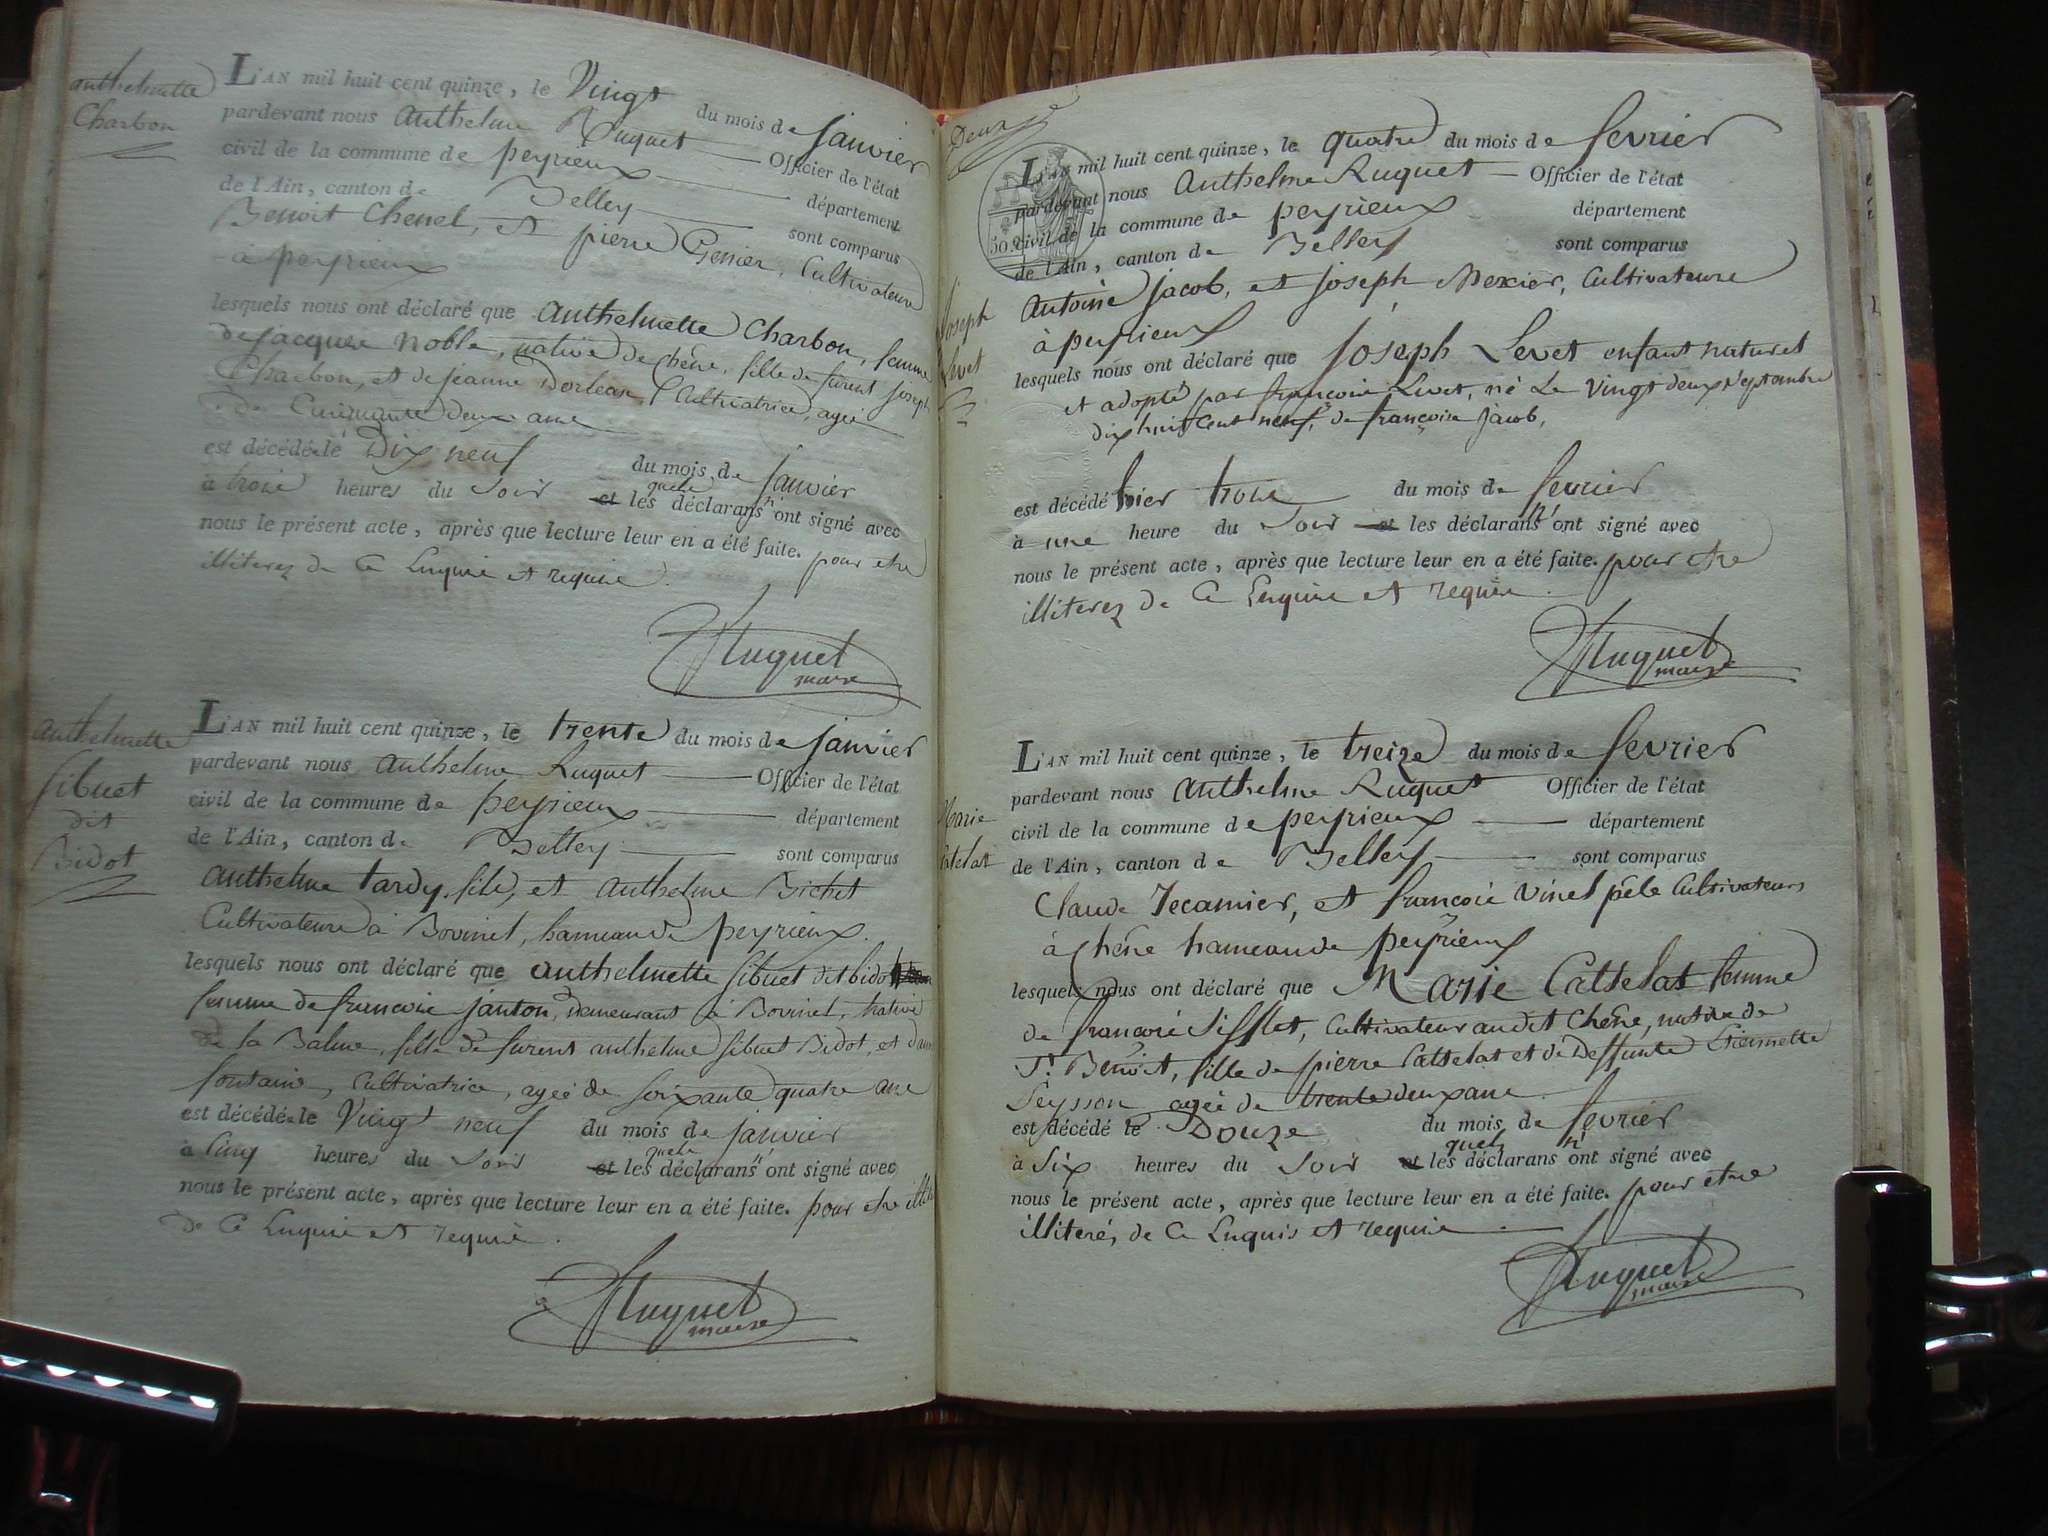 anthelmette
Charbon
L'AN mil huit cent quinze, le Vingt du mois de janvier
pardevant nous Anthelme Ruquet Officier de l'état
civil de la commune de peyrieux département
de l'Ain, canton de Belley sont comparus
Benoit Chenel, et pierre Genier, Cultivateurs
à peyrieux
lesquels nous ont déclaré que Anthelmette Charbon, femme
de jacques Noble, native de Chêne, fille de furent joseph
Charbon, et de jeanne Dorlean, Cultivatrice, agée
de Cinquante deux ans
est décédée le Dix neuf du mois de janvier
à trois heures du Soir et quels les déclarans n'ont signé avec
nous le présent acte, après que lecture leur en a été faite. pour etre
illiterez de Ce Enquis et requis.
Ruquet
maire
anthelmette
Sibuet
dit
Bidot
L'AN mil huit cent quinze, le trente du mois de janvier
pardevant nous Anthelme Ruquet Officier de l'état
civil de la commune de peyrieux département
de l'Ain, canton de Belley sont comparus
Anthelme tardy, fils, et Anthelme Bichet
Cultivateurs à Bovinel, hameau de peyrieux.
lesquels nous ont déclaré que anthelmette Sibuet dit bidot
femme de françois janton, demeurant à Bovinel, native
de la Balme, fille de furent anthelme Sibuet Bidot, et
fontaine, Cultivatrice, agée de Soixante quatre ans
est décédée le Vingt neuf du mois de janvier
à Cinq heures du Soir et quels les déclarans n'ont signé avec
nous le présent acte, après que lecture leur en a été faite. pour etre
de Ce Enquis et requis.
Ruquet
maire
Deux
joseph
Livet
L'AN mil huit cent quinze, le quatre du mois de fevrier
pardevant nous Anthelme Ruquet Officier de l'état
civil de la commune de peyrieux département
de l'Ain, canton de Belley sont comparus
Antoine jacob, et joseph Mercier, Cultivateurs
à peyrieux
lesquels nous ont déclaré que joseph Levet enfant naturel
et adopté par françois Livet, né Le Vingt deux Septembre
dix huit Cent neuf, de françoise jacob,
est décédé hier trois du mois de fevrier
à une heure du Soir et les déclarans n'ont signé avec
nous le présent acte, après que lecture leur en a été faite. pour etre
illiterez de Ce Enquis et requis.
Ruquet
maire
Marie
Catelat
L'AN mil huit cent quinze, le treize du mois de fevrier
pardevant nous Anthelme Ruquet Officier de l'état
civil de la commune de peyrieux département
de l'Ain, canton de Belley sont comparus
Claude Jecamier, et françois Vinel Cultivateurs
à Chêne hameau de peyrieux
lesquels nous ont déclaré que Marie Cattelat femme
de françois Sifflet, Cultivateur audit Chêne, native de
St Benoit, fille de pierre Cattelat et de Deffunte Etiennette
Seysson agée de trente deux ans.
est décédé le Douze du mois de fevrier
à Six heures du Soir et quels les déclarans n'ont signé avec
nous le présent acte, après que lecture leur en a été faite. pour etre
illiterés de Ce Enquis et requis.
Ruquet
maire